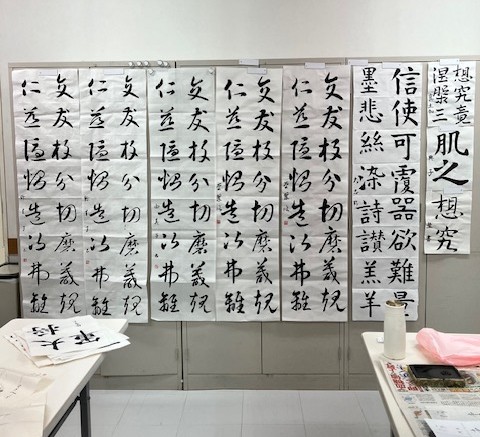 想究竟
涅槃三
肌之
想究
信使可覆器欲難量
墨悲絲染詩讚羔羊
交友投分切磨箴規
仁慈隱惻造次弗離
交友投分切磨箴規
仁慈隱惻造次弗離
交友投分切磨箴規
仁慈隱惻造次弗離
交友投分切磨箴規
仁慈隱惻造次弗離
交友投分切磨箴規
仁慈隱惻造次弗離